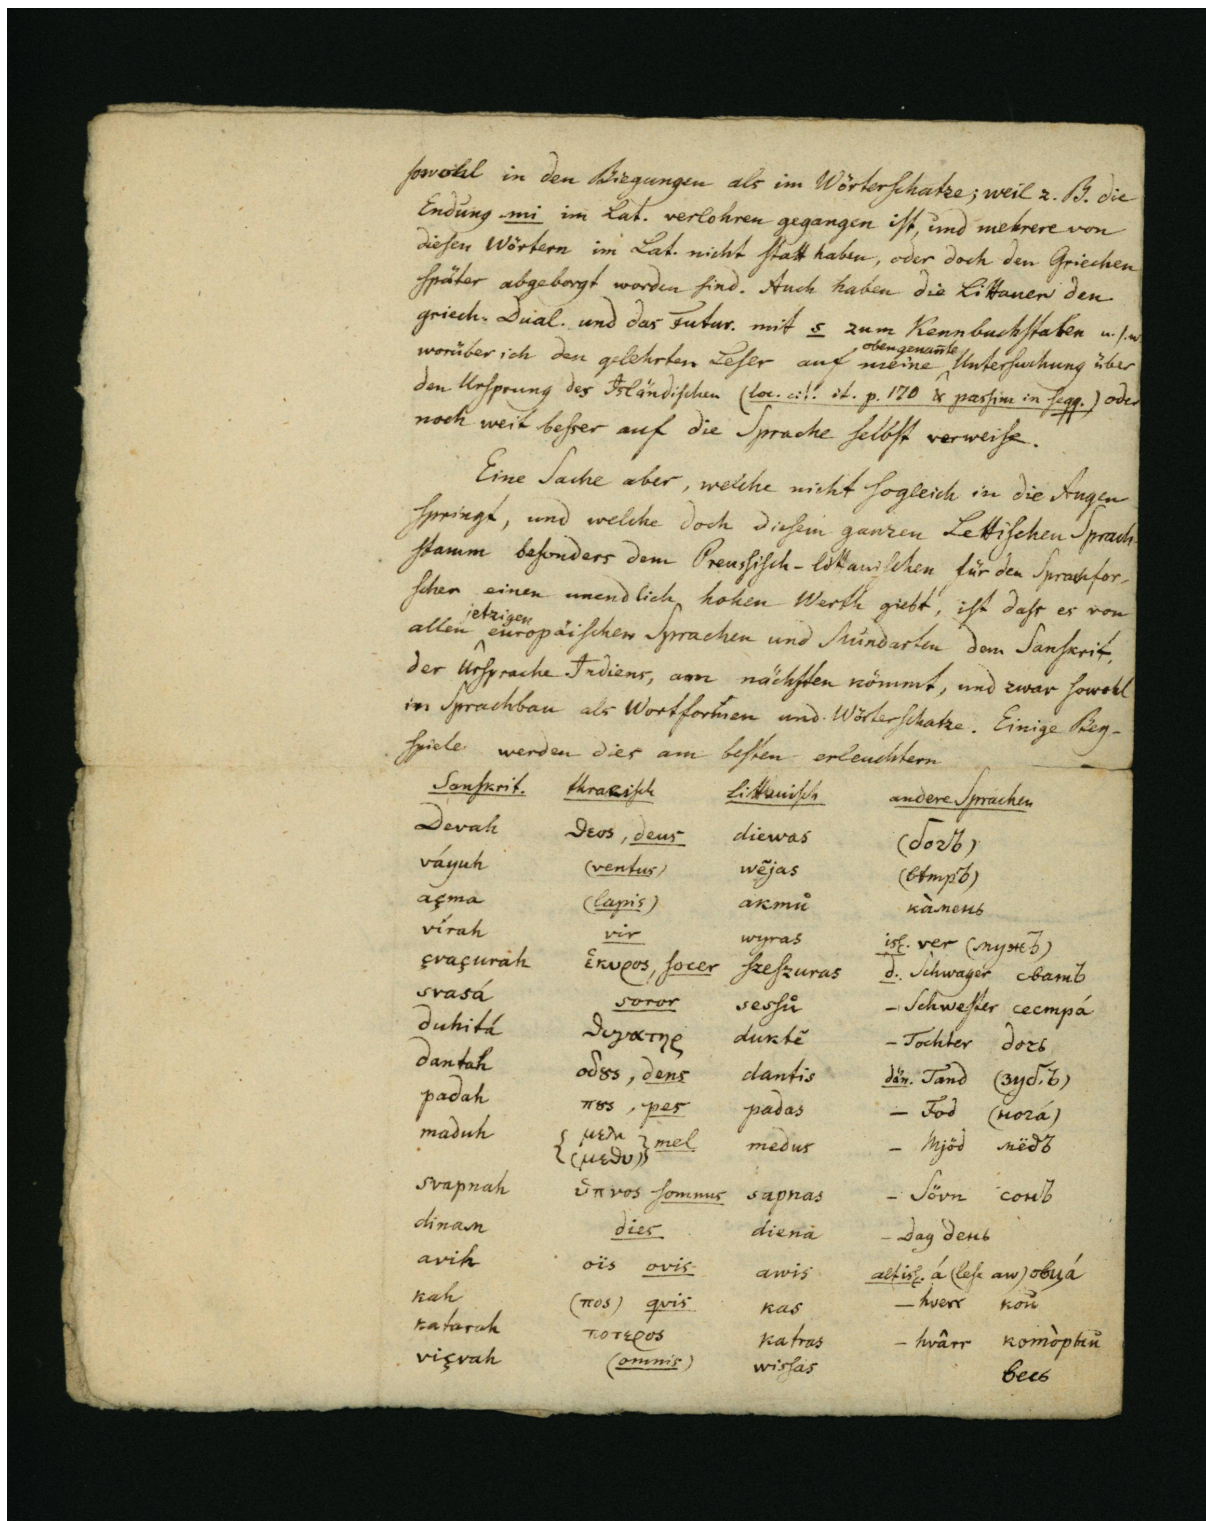 sowohl in den Biegungen als im Wörterschatze; weil z. B. die
Endung mi im Lat. verlohren gegangen ist, und mehrere von
diesen Wörtern im Lat. nicht statt haben, oder doch den Griechen
später abgeborgt worden sind. Auch haben die Littauer den
griech. Dual. und das Futur. mit s zum Kennbuchstaben u. s. w.
worüber ich den gelehrten Leser auf meine obengenan̄te Untersuchung über
den Ursprung des Isländischen (loc. cit. it. p. 170 & passim in seqq.) oder
noch weit besser auf die Sprache selbst verweise.
Eine Sache aber, welche nicht sogleich in die Augen
springt, und welche doch diesem ganzen Lettischen Sprach-
stamm besonders dem Preussisch-littauischen für den Sprachfor-
scher einen unendlich hohen Werth giebt, ist dass es von
allen jetzigen europäischen Sprachen und Mundarten dem Sanskrit,
der Ursprache Indiens, am nächsten kömmt, und zwar sowohl
im Sprachbau als Wortformen und Wörterschatze. Einige Bey-
spiele werden dies am besten erleuchtern
Sanskrit. thrazisch littauisch andere Sprachen
Devah ϑεος, deus diewas (богъ)
váyuh (ventus) wējas (вѣтръ)
açma (lapis) akmů ка̀мень
vírah vir wyras isl. ver (мужъ)
çvaçurah ἑκυρος, socer szeszuras d. Schwager сватъ
svasá soror sessů – Schwester сестра́
duhitá ϑυγατηρ duktē – Tochter дочь
dantah οδȣς, dens dantis dän. Tand (зубъ)
padah πȣς, pes padas – Fod (нога́)
maduh {μελι (μεϑυ)} mel medus – Mjöd мёдъ
svapnah ὑπνος somnus sapnas – Sövn сонъ
dinam dies diena – Dag день
avih οϊς ovis awis altisl. á (les aw) овца́
kah (πος) qvis kas – hverr кой
katarah ποτερος katras – hvârr кото̀рый
viçvah (omnis) wissas весь